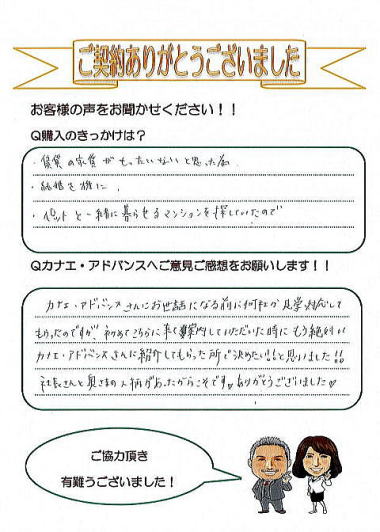 ご契約ありがとうございました
お客様の声をお聞かせください！！
Q購入のきっかけは？
・賃貸の家賃がもったいないと思った為
・結婚を機に、
・ペットと一緒に暮らせるマンションを探していたので
Qカナエ・アドバンスへご意見ご感想をお願いします！！
カナエ・アドバンスさんにお世話になる前に何社か見学対応して
もらったのですが、初めてこちらに来て案内していただいた時にもう絶対!!
カナエ・アドバンスさんに紹介してもらった所で決めたい!!と思いました!!
社長さんと奥さまの人柄があったからこそです♡ありがとうございました♡
ご協力頂き
有難うございました！